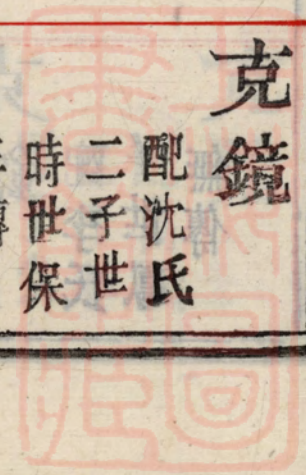 克鏡
配沈氏
二子世
時世保